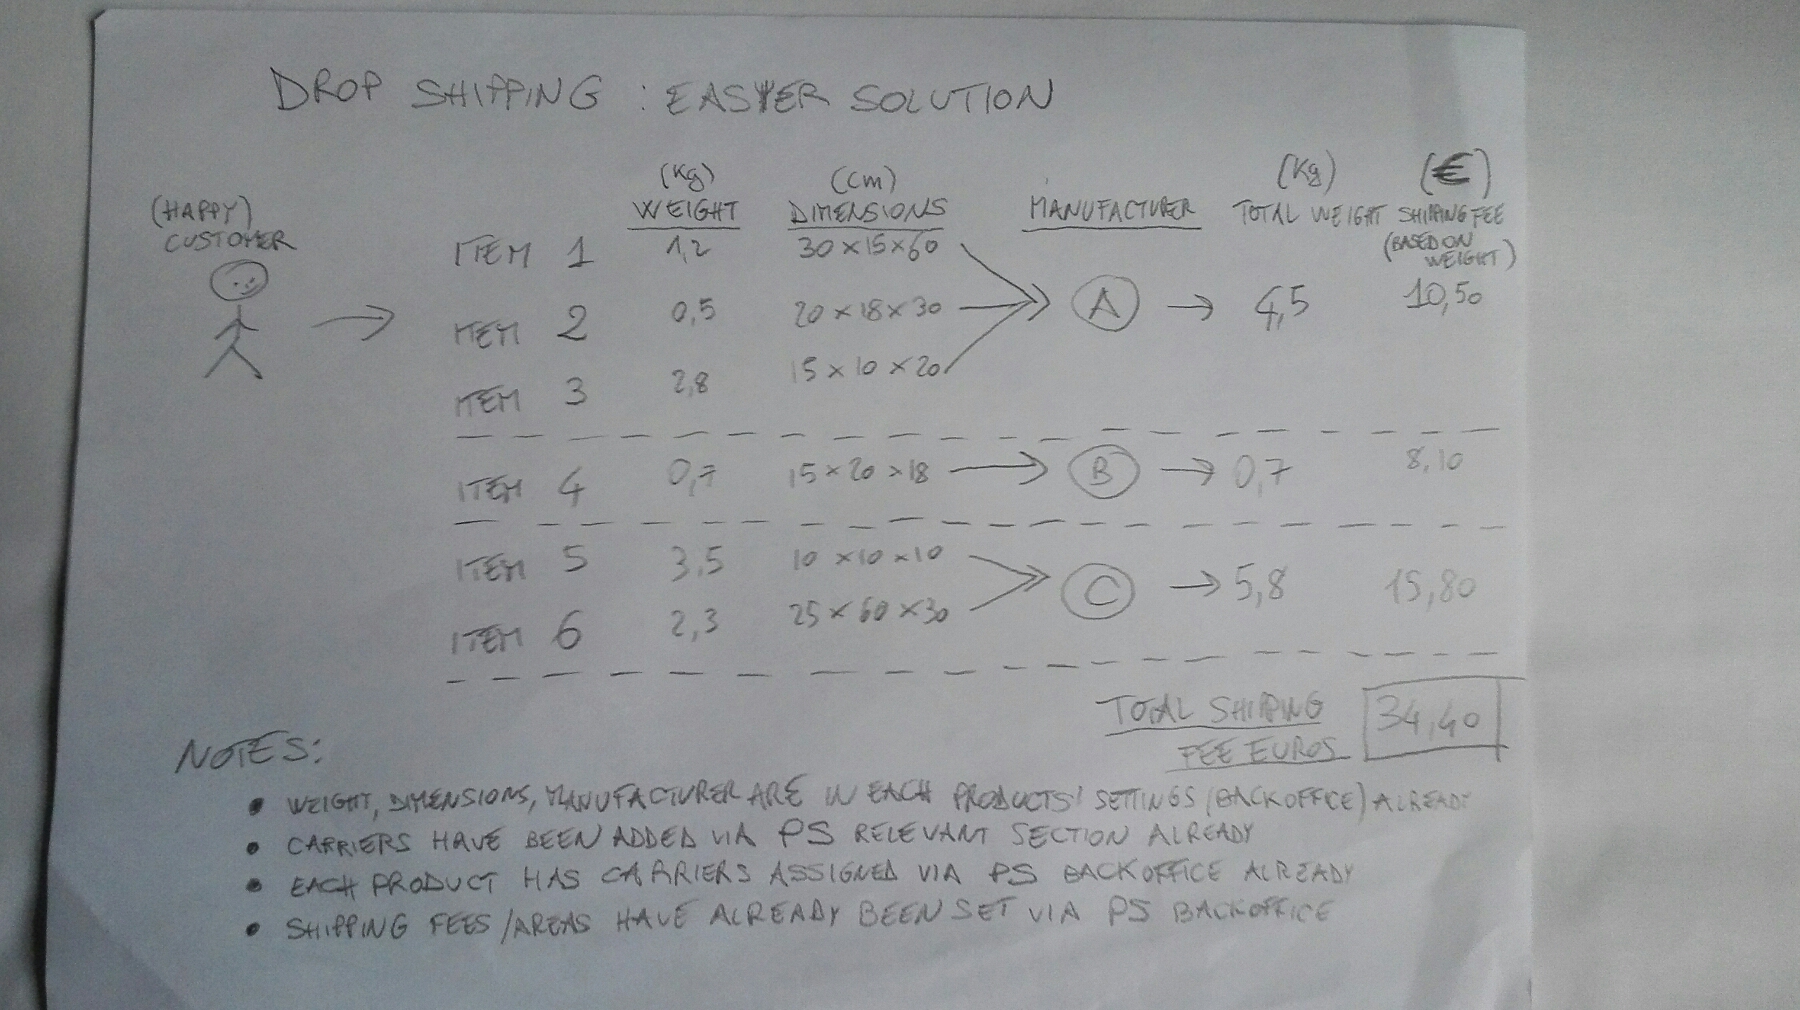 DROP SHIPPING : EASYER SOLUTION
(Kg) (Cm) (Kg) (€)
(HAPPY) WEIGHT DIMENSIONS MANUFACTURER TOTAL WEIGHT SHIPPING FEE
CUSTOMER (BASED ON
WEIGHT)
ITEM 1 1,2 30 x 15 x 60
ITEM 2 0,5 20 x 18 x 30 A → 4,5 10,50
ITEM 3 2,8 15 x 10 x 20
ITEM 4 0,7 15 x 20 x 18 → B → 0,7 8,10
ITEM 5 3,5 10 x 10 x 10
C → 5,8 15,80
ITEM 6 2,3 25 x 60 x 30
TOTAL SHIPPING 34,40
FEE EUROS
NOTES:
• WEIGHT, DIMENSIONS, MANUFACTURER ARE IN EACH PRODUCTS' SETTINGS (BACKOFFICE) ALREADY
• CARRIERS HAVE BEEN ADDED VIA PS RELEVANT SECTION ALREADY
• EACH PRODUCT HAS CARRIERS ASSIGNED VIA PS BACKOFFICE ALREADY
• SHIPPING FEES/AREAS HAVE ALREADY BEEN SET VIA PS BACKOFFICE